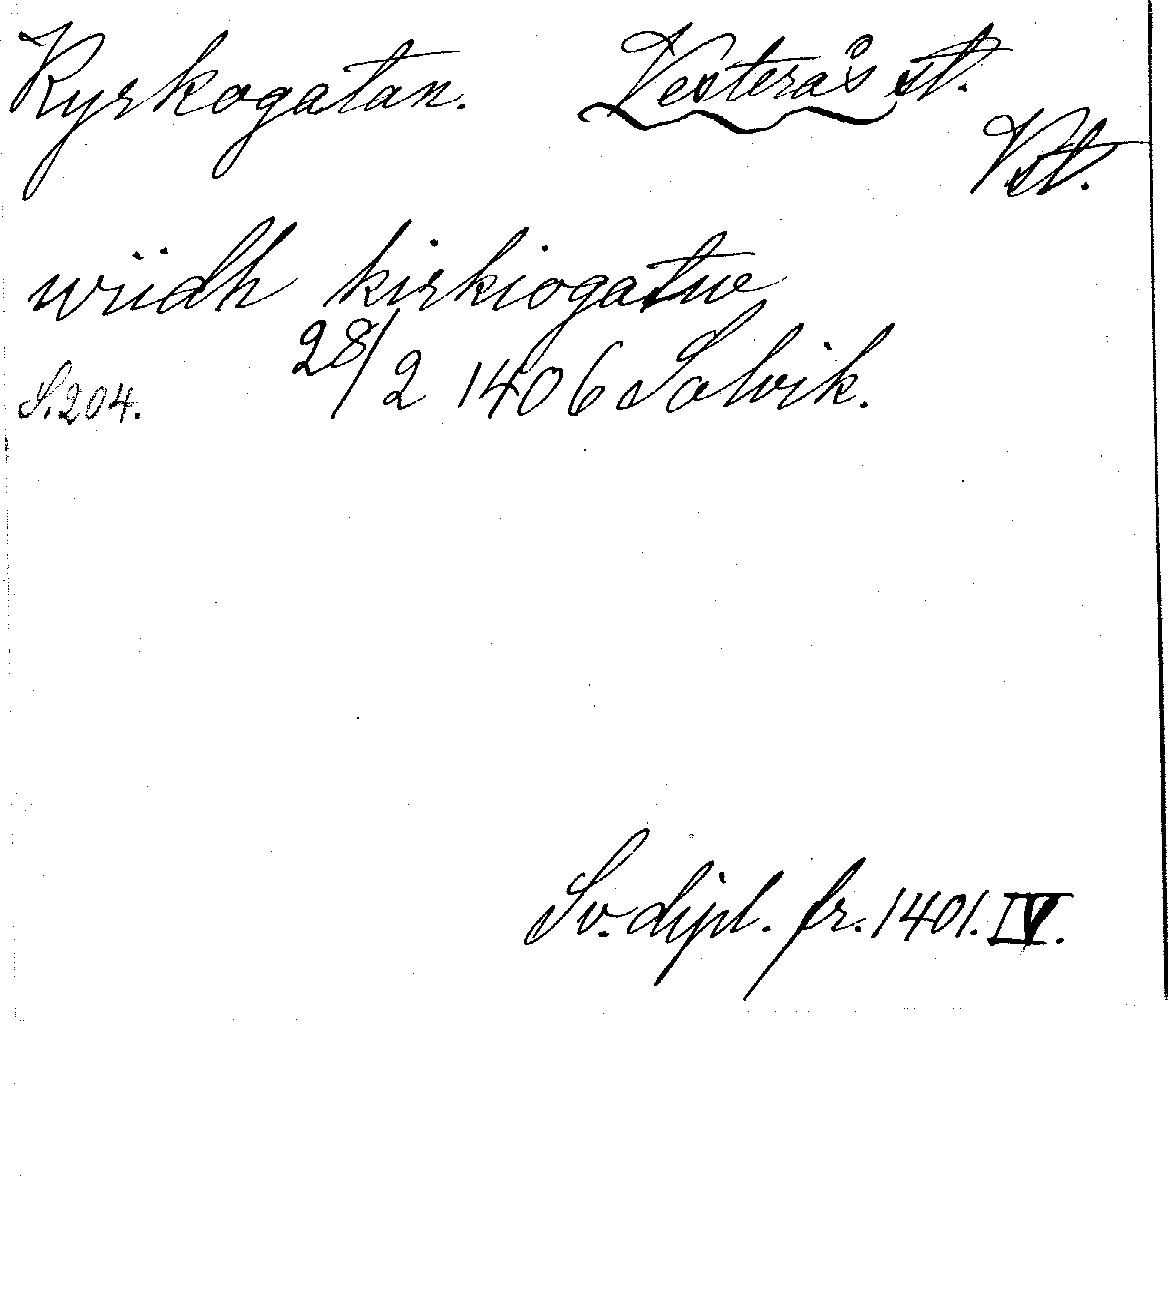 Kyrkogatan. Vesterås st.
Vst.
wiidh kirkiogatw
28/2 1406 Salvik.
S. 204.
Sv. dipl. fr. 1401. IV.